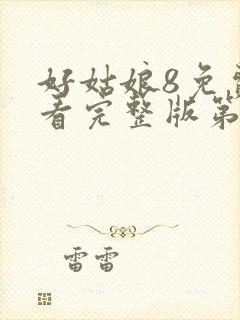 好姑娘8免
看完整版第
雷雷